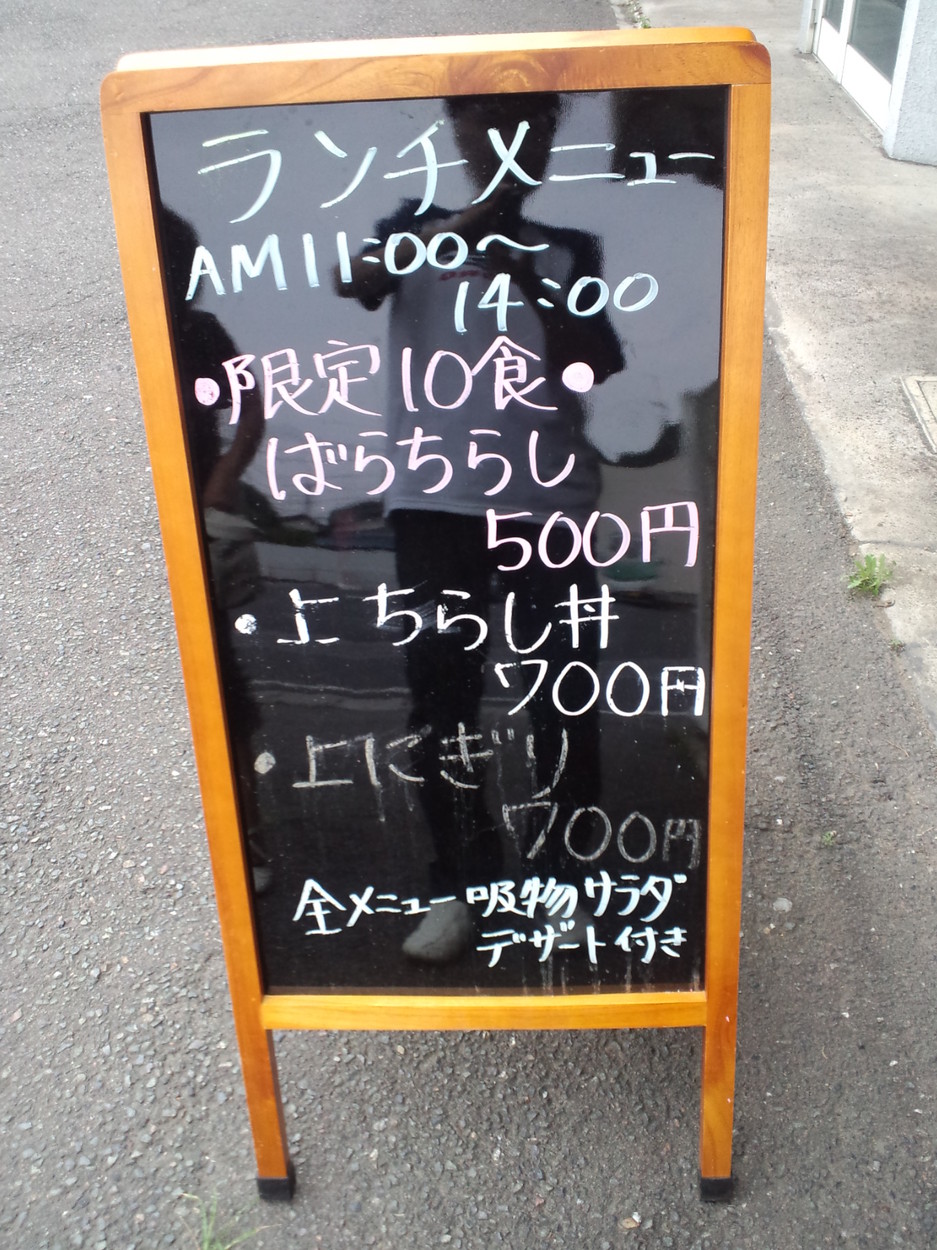 ランチメニュー
AM11:00〜
14:00
・限定10食・
ばらちらし
500円
・上ちらし丼
700円
・上にぎり
700円
全メニュー吸物サラダ
デザート付き